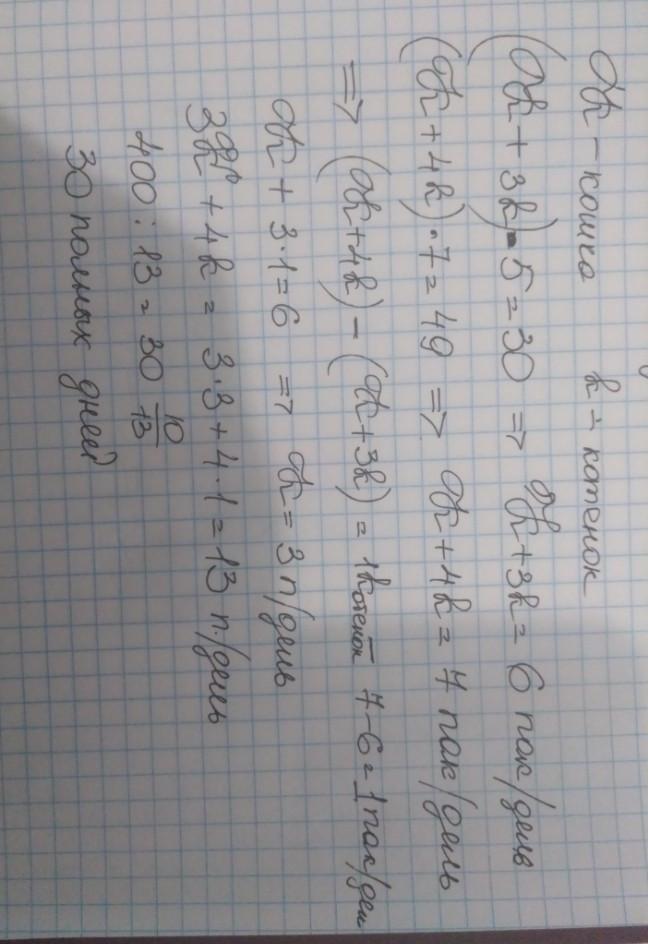 К – кошка к – котенок
(К + 3к)·5 = 30 => К + 3к = 6 пак/день
(К + 4к)·7 = 49 => К + 4к = 7 пак/день
=> (К + 4к) – (К + 3к) = 1 котенок – 7 – 6 = 1 пак/ден
К + 3·1 = 6 => К = 3 п/день
3К + 4к = 3·3 + 4·1 = 13 п./день
400 : 13 = 30 10/13
30 полных дней